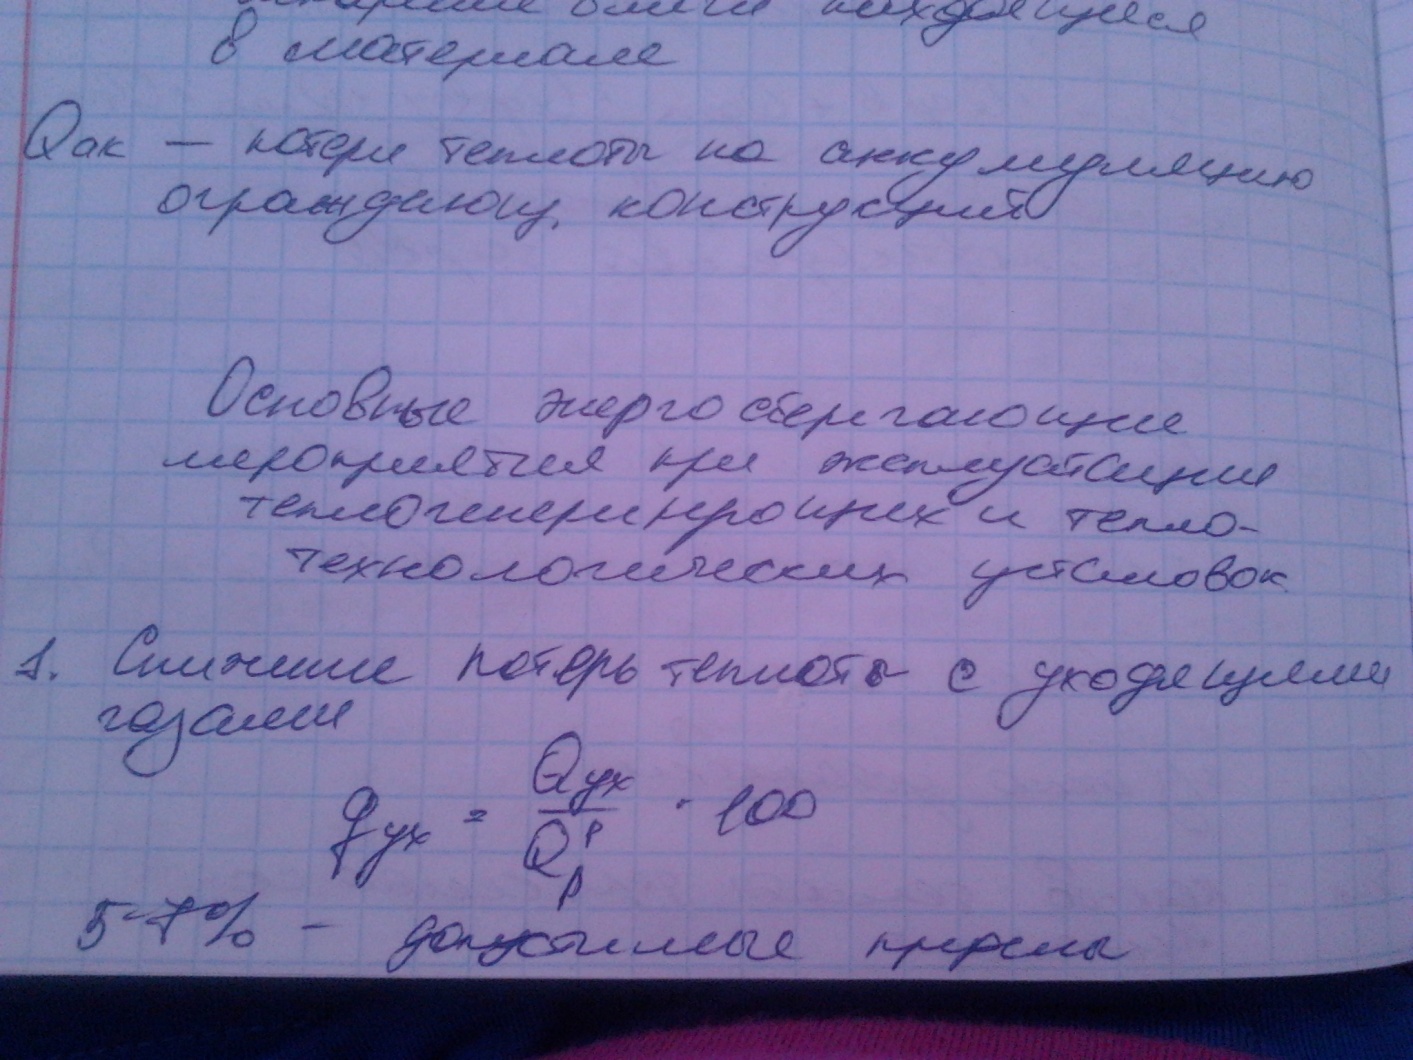 испарение влаги находящейся
в материале
Qак — потери теплоты на аккумуляцию
ограждающ. конструкций
Основные энергосберегающие
мероприятия при эксплуатации
теплогенерирующих и тепло-
технологических установок
1. Снижение потерь теплоты с уходящими
газами
qух = Qух / Qрр · 100
5-7% - допустимые пределы